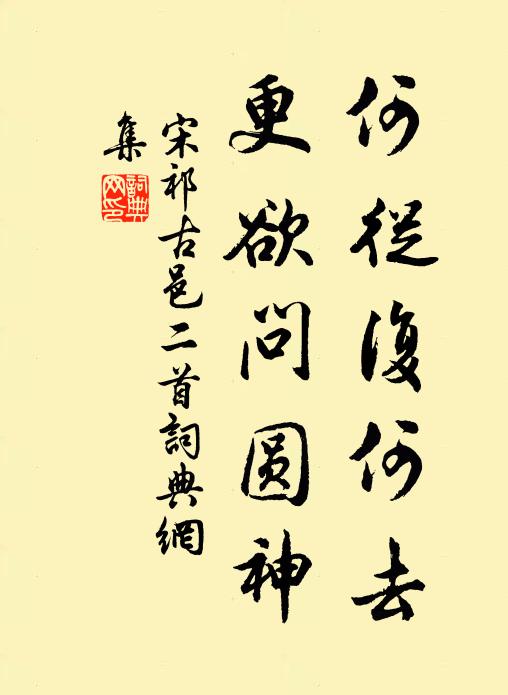 何從復何去
更欲問圓神
宋祁古邑二首詞典網
集
詞典
网印